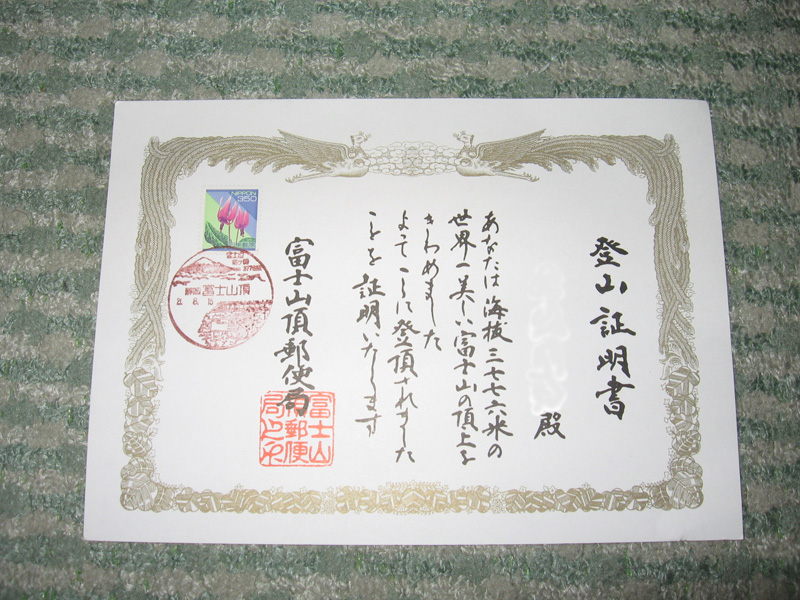 登山証明書
殿
あなたは海抜三七七六米の
世界一美しい富士山の頂上を
きわめました
よってここに登頂されました
ことを証明いたします
富士山頂郵便局
富士山
頂郵便
局之印
NIPPON
350
富士山頂